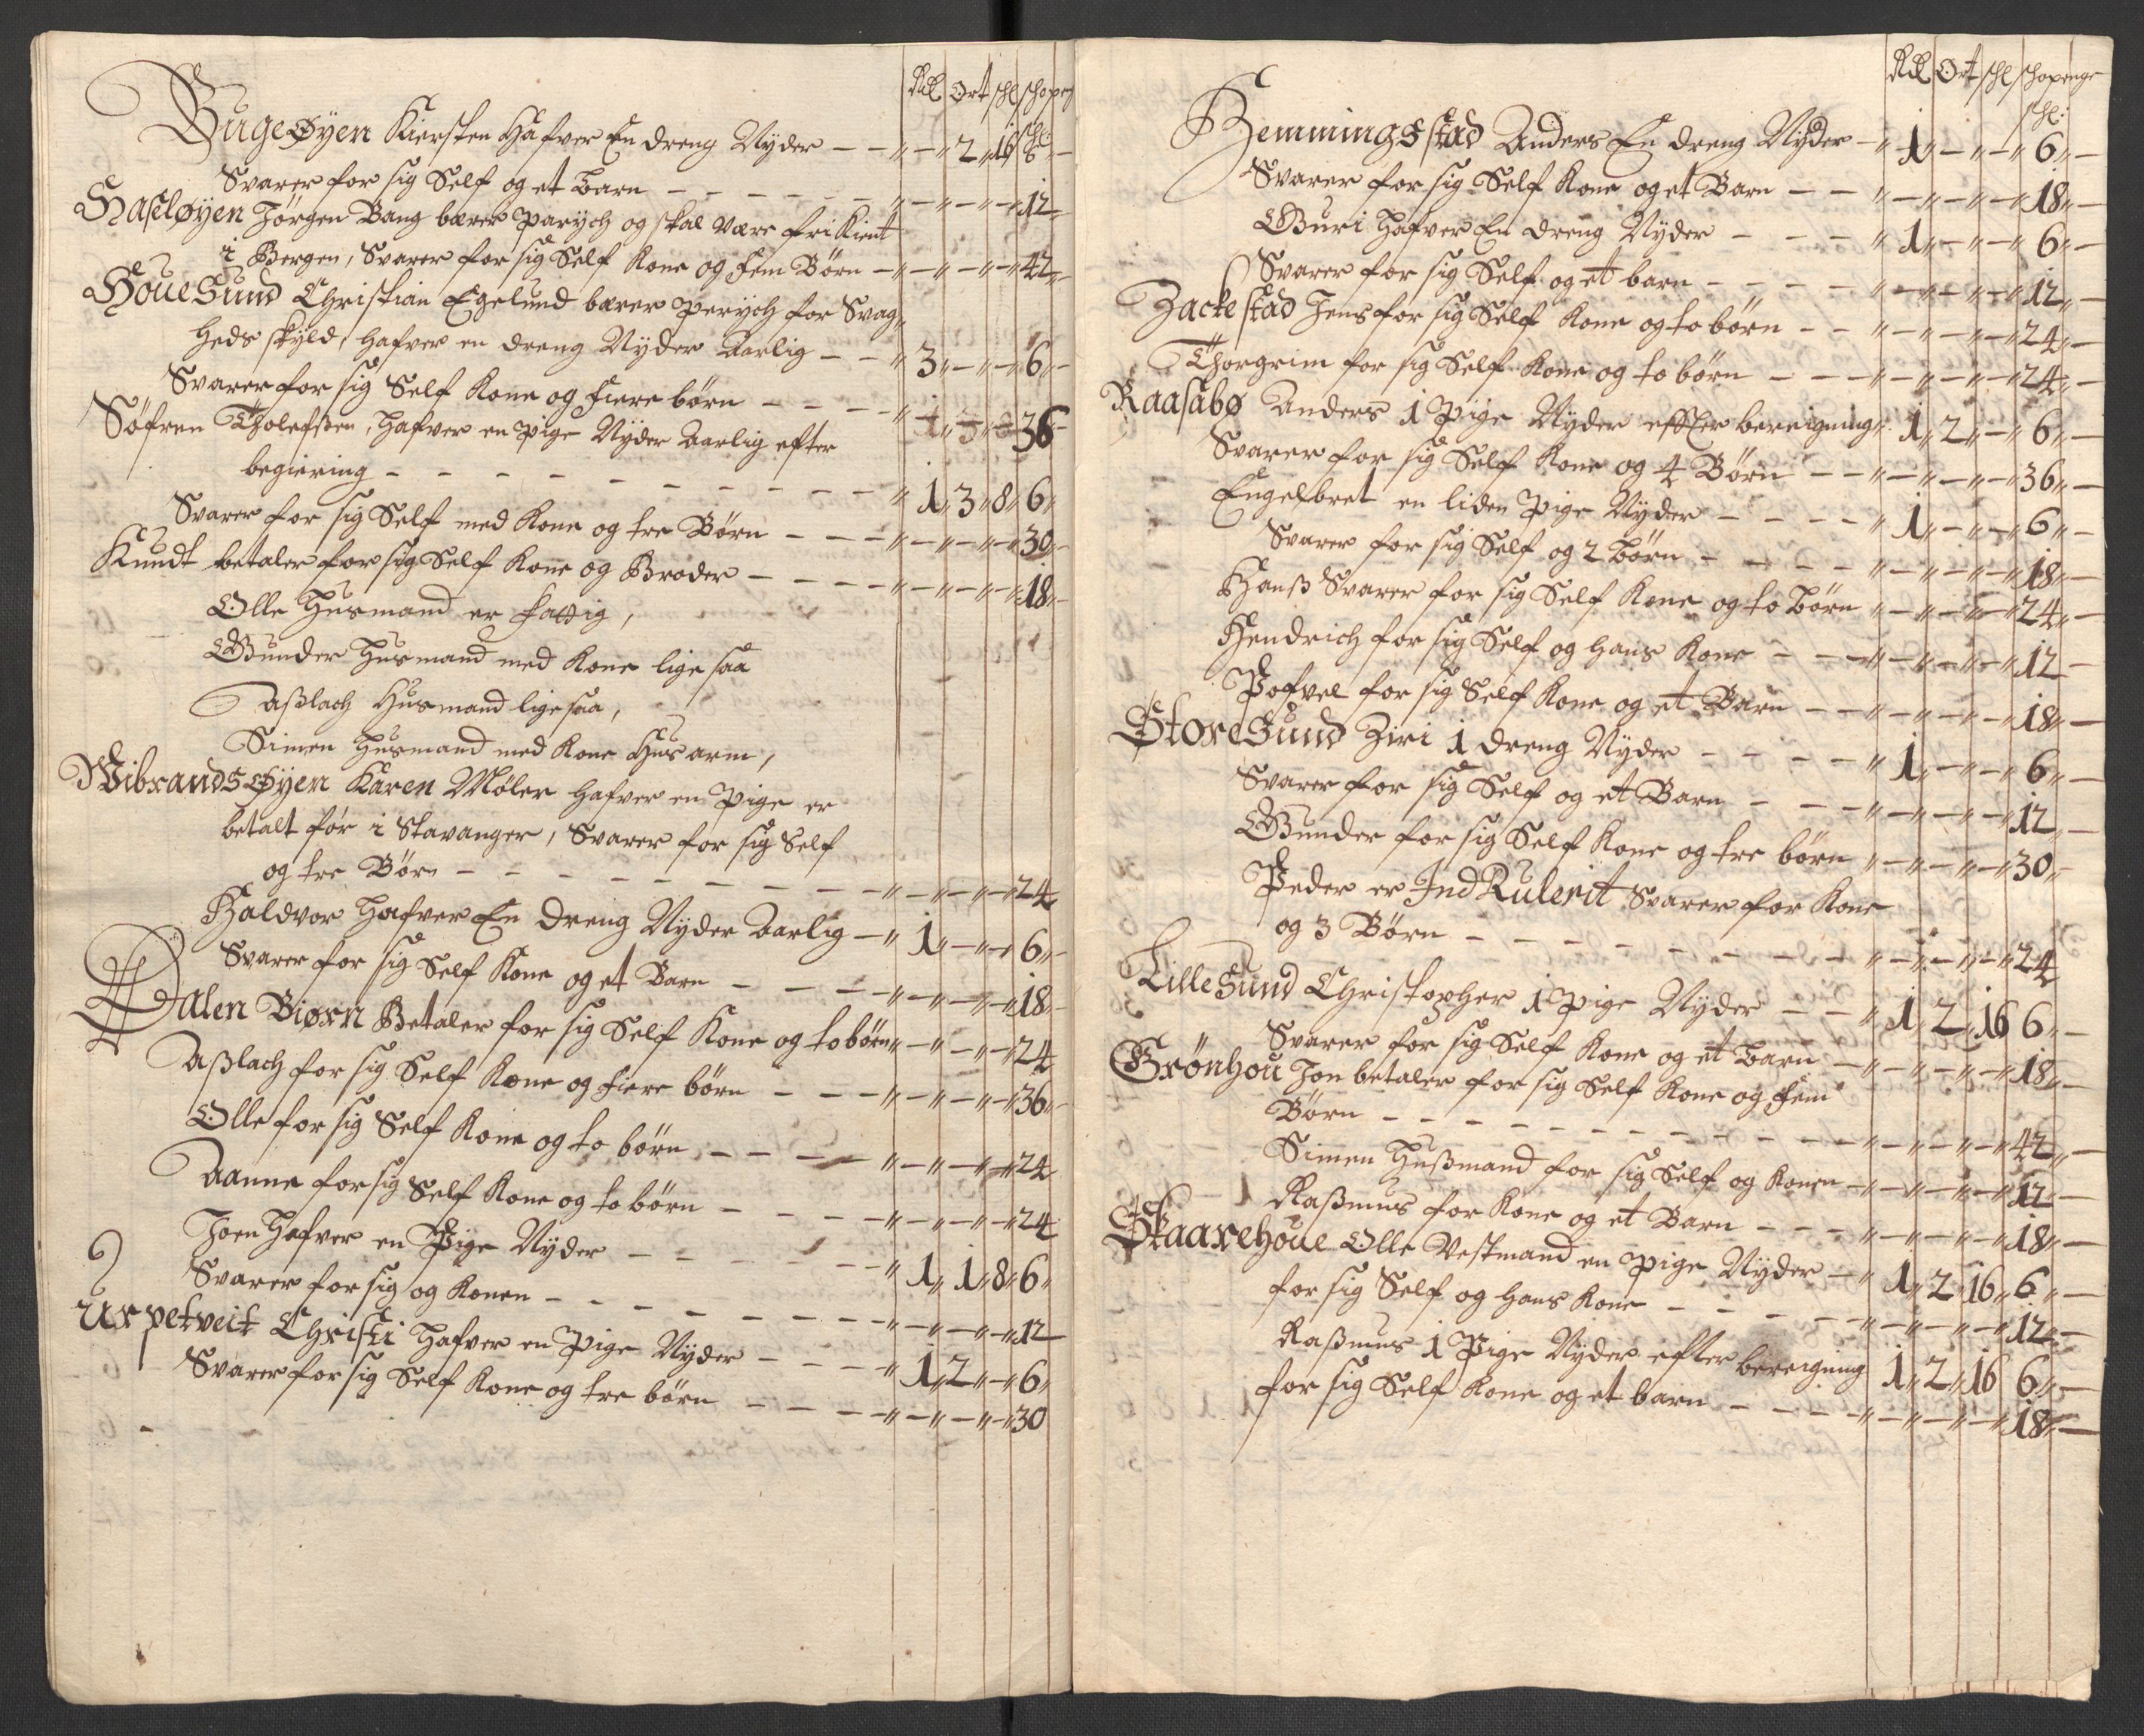 Rdl Ort schl schopeng
schl:
BugeØyen Kiersten Hafver En dreng Nyder — — „ — 2 „ 16 6 —
Svarer for sig Self og et barn — — — — „ — „ — „ — „ 12 „
Hasseløyen Jörgen Bang bærer Parych og skal være fri Kient
i Bergen, Svarer for sig Self Kone og Fem Börn — „ — „ — „ — „ 42 „
HoueSund Christian Egelund bærer Perych for Svag„
heds skyld, hafver en dreng Nyder Aarlig — — „ 3 „ — „ — „ 6 „ —
Svarer for sig Self Kone og Fiere börn — — — — „ 36
Söfren Tholefssen, hafver en Pige Nyder Aarlig efter
begiering — — — — — — — — — „ 1 „ 3 „ 8 „ 6 „
Svarer for sig Self med Kone og tre Börn — — — „ — „ — „ — „ 30 „
Knudt betaler for sig Self Kone og Broder — — — — „ — „ — „ — „ 18 „
Olle Husmand er fattig,
Gunder Husmand med Kone lige saa
Asslach Husmand lige saa,
Simen Husmand med Kone Hus arm,
WibrandsØyen Karen Møler hafver en Pige er
betalt för i Stavanger, Svarer for sig Self
og tre Börn — — — — — — — — — „ — „ — „ — „ 24
Haldvor Hafver En dreng Nyder Aarlig — „ 1 „ — „ — „ 6 „ —
Svarer for sig Self Kone og et Barn — — — — „ — „ — „ — „ 18 „
Dalen Biørn Betaler for sig Self Kone og to börn „ — „ — „ — „ 24
Asslach for sig Self Kone og Fiere börn — — — „ — „ — „ — „ 36 „
Olle for sig Self Kone og to börn — — — — „ — „ — „ — „ 24
Aanne for sig Self Kone og to börn — — — — „ — „ — „ — „ 24
Joen Hafver en Pige Nyder — — — — — „ 1 „ 1 „ 8 „ 6 „
Svarer for sig og Konen — — — — — — — „ — „ — „ — „ 12
Urpetveit Christi Hafver en Pige Nyder — — — — „ 1 „ 2 „ — „ 6 „
Svarer for sig Self Kone og tre börn — — — — „ — „ — „ — „ 30
Rdl Ort schl schopenge
schl:
Hemmingsstad Anders En dreng Nyder — „ 1 „ — „ — „ 6 „ —
Svarer for sig Self Kone og et Barn — — „ — „ — „ — „ 18 „ —
Guri Hafver En dreng Nyder — — — „ 1 „ — „ — „ 6 „ —
Svarer for sig Self og et barn — — — — „ — „ — „ — „ 12 „ —
Zackestad Jens for sig Self Kone og to börn — — „ — „ — „ — „ 24 „ —
Thorgrim for sig Self Kone og to börn — — — „ — „ — „ — „ 24 „ —
Raasabø Anders 1 Pige Nyder effter bereigning „ 1 „ 2 „ — „ 6 „ —
Svarer for sig Self Kone og 4 Börn — — „ — „ — „ — „ 36 „ —
Engelbret en liden Pige Nyder — — — — „ 1 „ — „ — „ 6 „ —
Svarer for sig Self og 2 börn — — — — „ — „ — „ — „ 18 „ —
Hanss Svarer for sig Self Kone og to börn „ — „ — „ — „ 24 „ —
Hendrich for sig Self og hans Kone — — — „ — „ — „ — „ 12 —
Pofvel for sig Self Kone og et Barn — — — „ — „ — „ — „ 18 „ —
StoreSund Ziri 1 dreng Nyder — — — — „ 1 „ — „ — „ 6 „ —
Svarer for sig Self og et Barn — — — „ — „ — „ — „ 12 „ —
Gunder for sig Self Kone og tre börn „ — „ — „ — „ 30 „
Peder er IndRulerit Svarer for Kone
og 3 Börn — — — — — — — — „ — „ — „ — „ 24
LilleSund Christopher 1 Pige Nyder — — „ 1 „ 2 „ 16 6 „ —
Svarer for sig Self Kone og et barn — „ — „ — „ — „ 18 „ —
Grönhou Jon betaler for sig Self Kone og Fem
Börn — — — — — — — — — — „ — „ — „ — „ 42 „ —
Simen Hussmand for sig Self og Konen — „ — „ — „ — „ 12 —
Rassmus for Kone og et Barn — — — — „ — „ — „ — „ 18 „ —
Skaarehoue Olle Vestmand en Pige Nyder — „ 1 „ 2 „ 16 „ 6 „ —
for sig Self og hans Kone — — — — — „ — „ — „ — „ 12 „ —
Rassmus 1 Pige Nyder efter bereigning 1 „ 2 „ 16 6 „ —
for sig Self Kone og et barn — — — — „ — „ — „ — „ 18 „ —